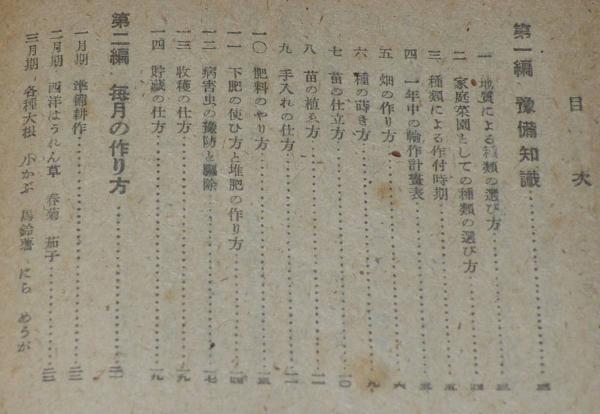 目次
第一編 豫備知識……三
一 地質による種類の選び方……三
二 家庭菜園としての種類の選び方……四
三 種類による作付時期……五
四 一年中の輪作計畫表……六
五 畑の作り方……六
六 種の蒔き方……九
七 苗の仕立方……一〇
八 苗の植え方……一一
九 手入れの仕方……一一
一〇 肥料のやり方……一三
一一 下肥の使ひ方と堆肥の作り方……一四
一二 病害虫の豫防と驅除……一七
一三 收穫の仕方……一九
一四 貯藏の仕方……一九
第二編 毎月の作り方……二一
一月期 準備耕作……二二
二月期 西洋ほうれん草 春菊 茄子……二三
三月期 各種大根 小かぶ 馬鈴薯 にら めうが